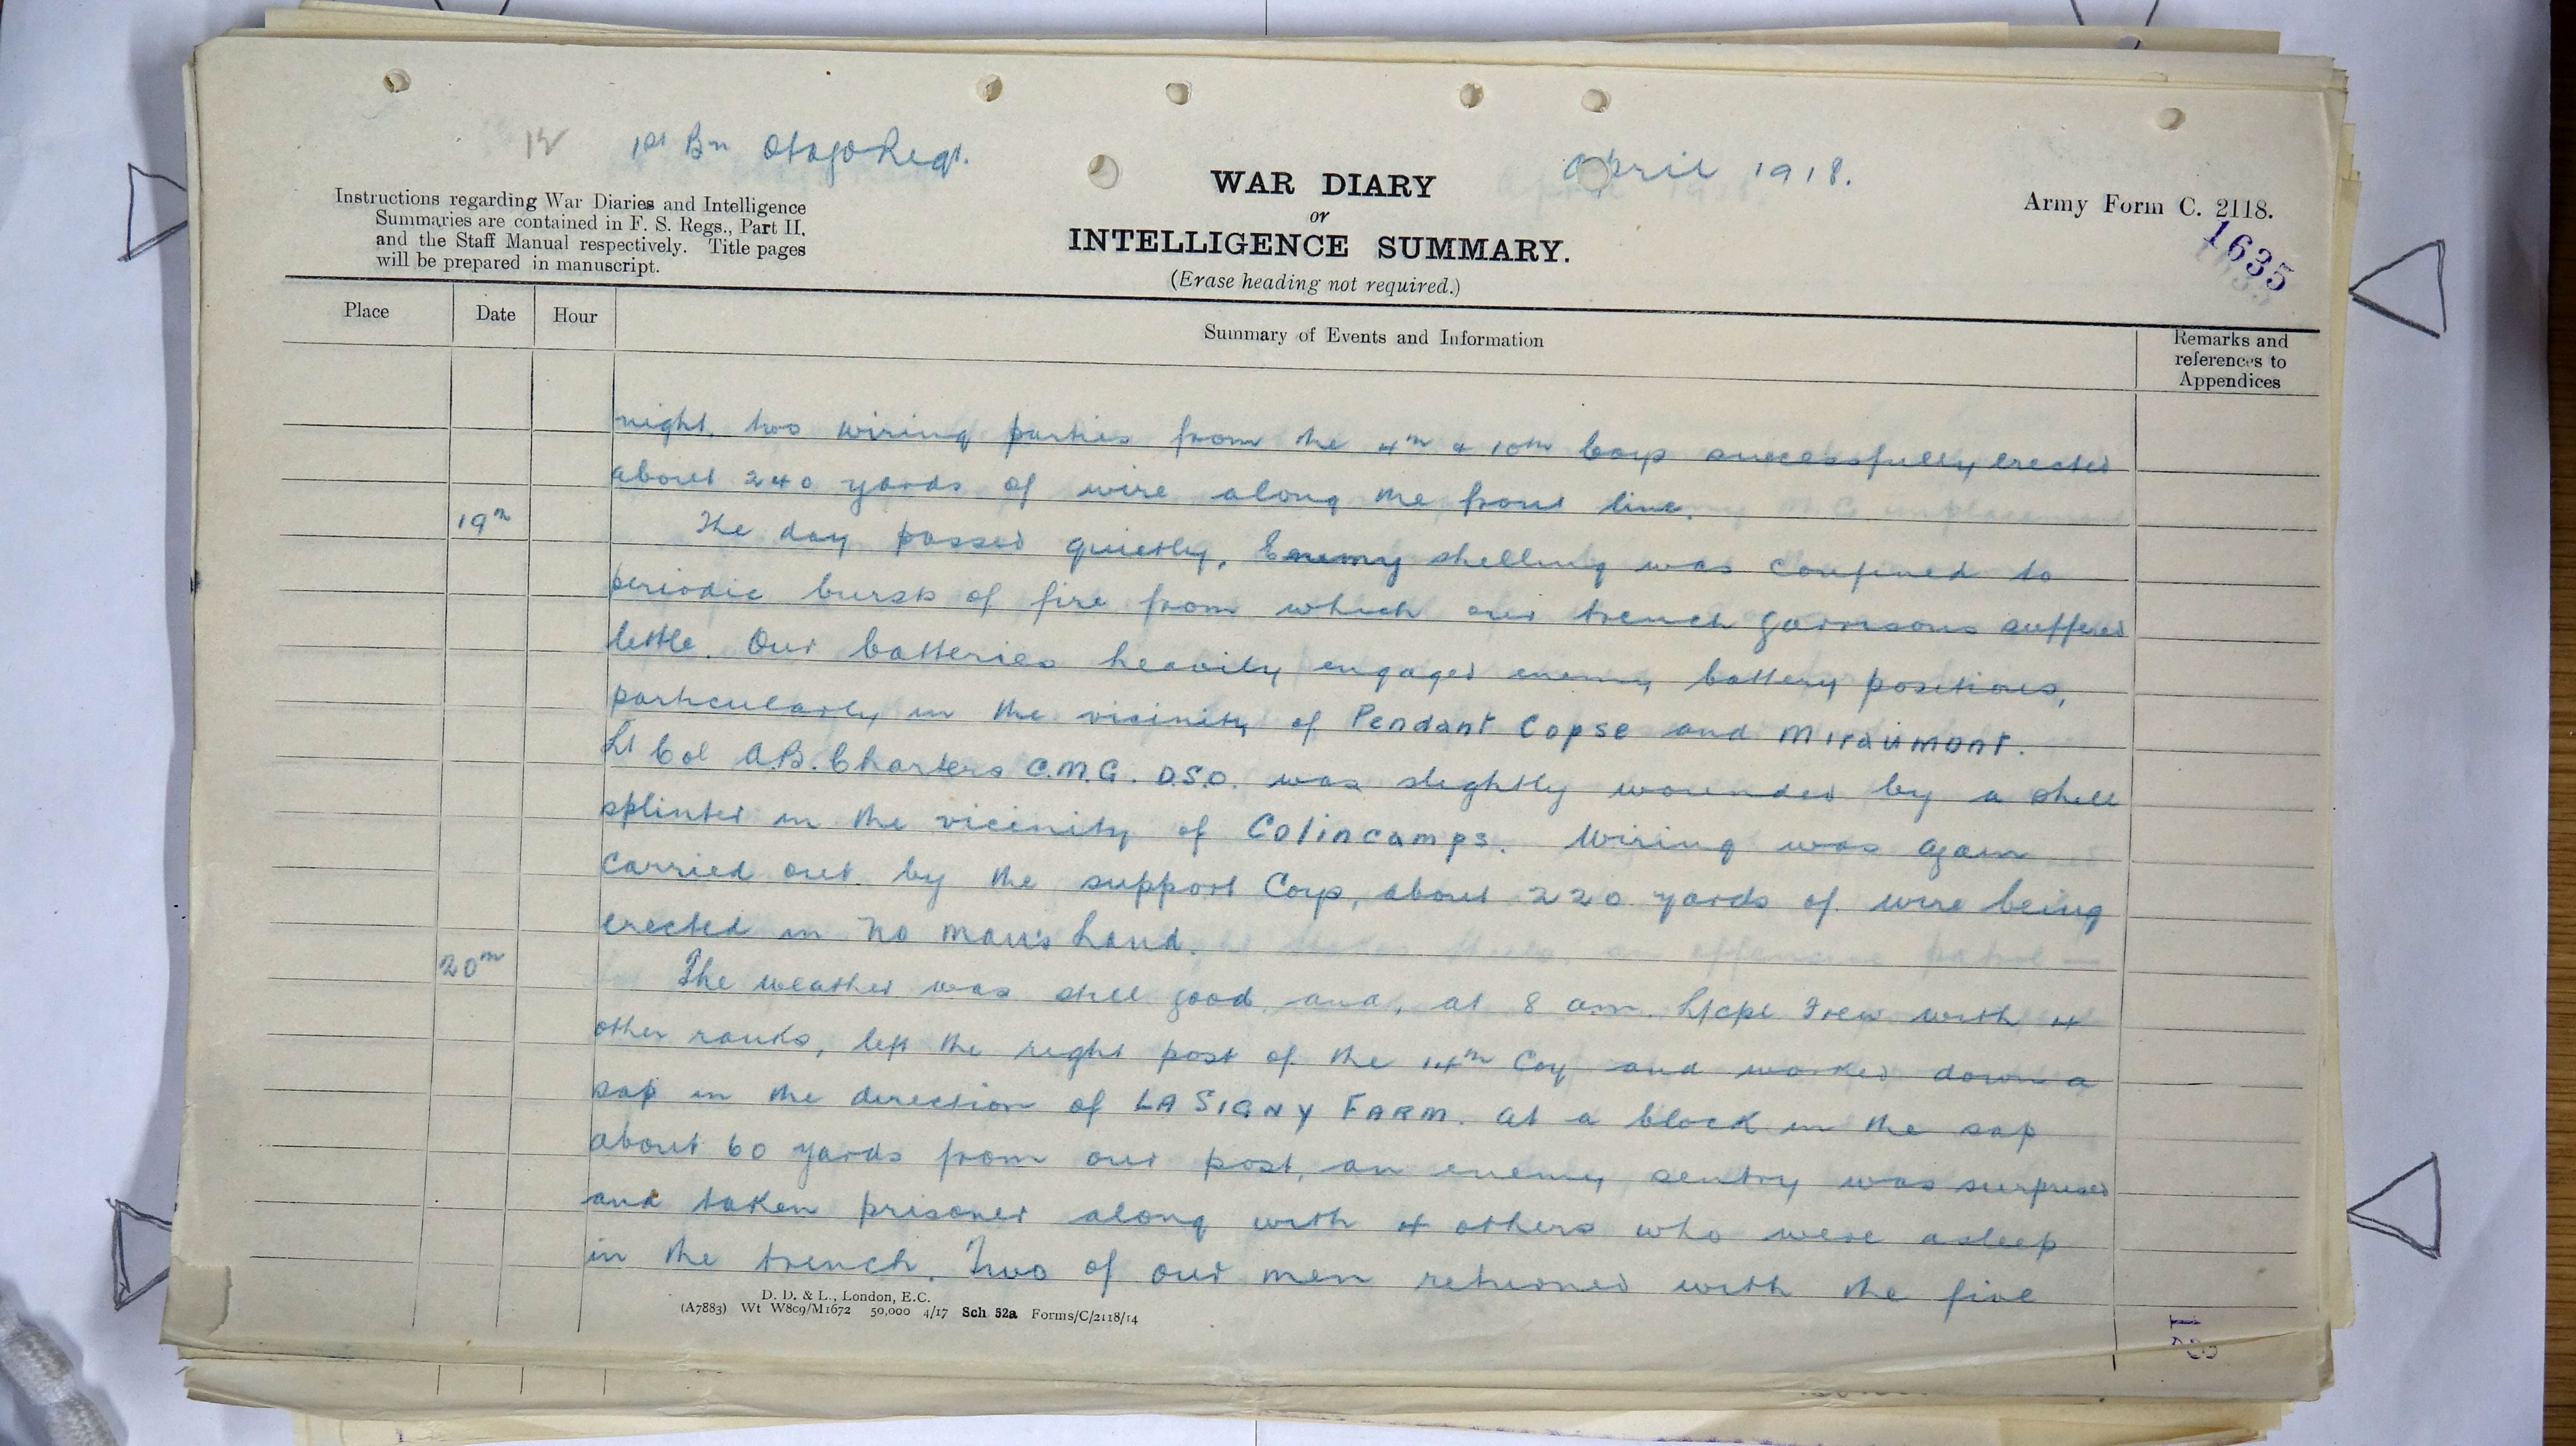 12 1st Bn Otago Regt.
April 1918.
WAR DIARY
or
INTELLIGENCE SUMMARY.
(Erase heading not required.)
Instructions regarding War Diaries and Intelligence
Summaries are contained in F. S. Regs., Part II,
and the Staff Manual respectively. Title pages
will be prepared in manuscript.
Army Form C. 2118.
1635
Place Date Hour Summary of Events and Information Remarks and
references to
Appendices
night, two wiring parties from the 4th & 10th Coys successfully erected
about 240 yards of wire along the front line.
19th The day passed quietly. Enemy shelling was confined to
periodic bursts of fire from which our trench garrisons suffered
little. Our batteries heavily engaged enemy battery positions,
particularly in the vicinity of Pendant Copse and Miraumont.
Lt Col A.B. Charters C.M.G. D.S.O. was slightly wounded by a shell
splinter in the vicinity of Colincamps. Wiring was again
carried out by the support Coys, about 220 yards of wire being
erected in No Man's Land.
20th The weather was still good and, at 8 am. L/cpl Trew with 4
other ranks, left the right post of the 14th Coy and worked down a
sap in the direction of LA SIGNY FARM. At a block in the sap
about 60 yards from our post, an enemy sentry was surprised
and taken prisoner along with 4 others who were asleep
in the trench. Two of our men returned with the five
D. D. & L., London, E.C.
(A7883) Wt W809/M1672 50,000 4/17 Sch 52a Forms/C/2118/14